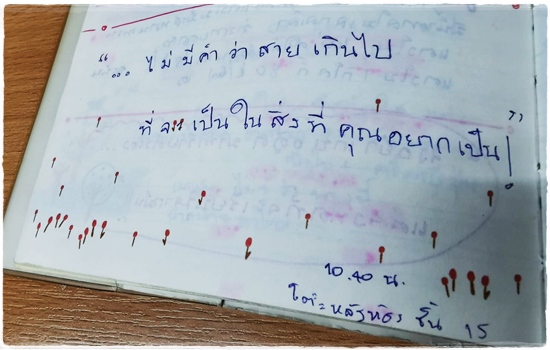 “... ไม่ มี คำ ว่า สาย เกินไป
ที่ จะ เป็น ใน สิ่ง ที่ คุณ อยาก เป็น ”
10.40 น.
โต๊ะ หลัง ห้อง ชั้น 15